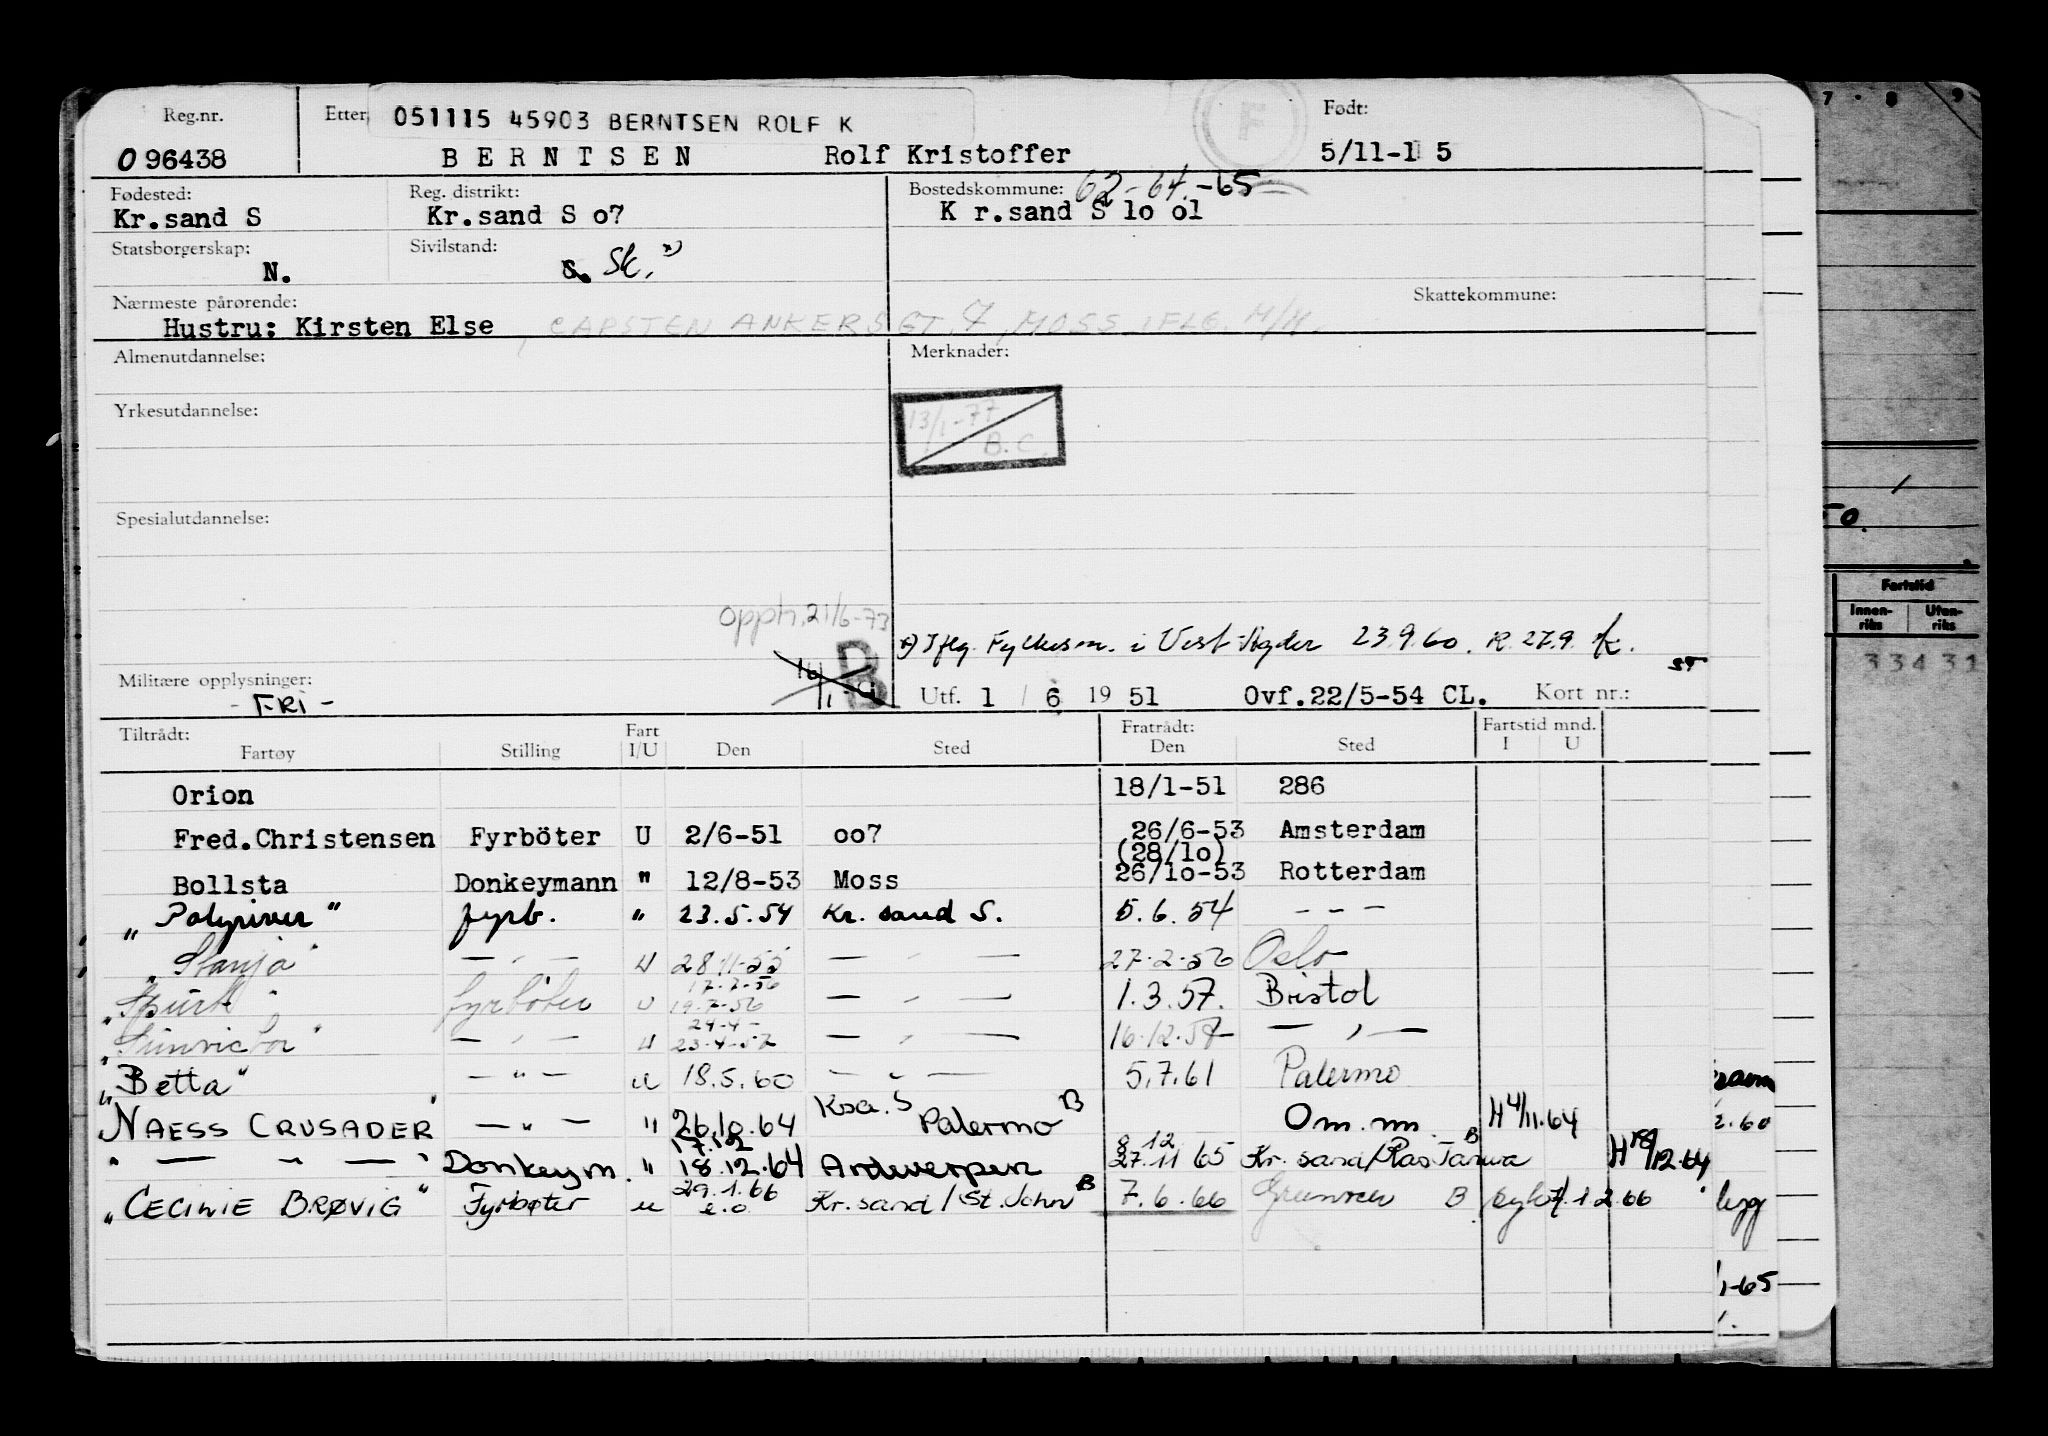 Reg.nr. Etter 051115 45903 BERNTSEN ROLF K F Født:
096438 BERNTSEN Rolf Kristoffer 5/11-1 5
Fødested: Reg. distrikt: Bostedskommune: 62-64.-65
Kr.sand S Kr.sand S o7 K r.sand S lo ol
Statsborgerskap: Sivilstand:
N. S. Sk. *)
Nærmeste pårørende: Skattekommune:
Hustru: Kirsten Else, CARSTEN ANKERSGT. 7, MOSS IFLG. M/H.
Almenutdannelse: Merknader:
13/1-77
Yrkesutdannelse:
B.C.
Spesialutdannelse:
Opph. 21/6-73
*) Iflg. Fylkesm. i Vest-Agder 23.9.60. R. 27.9.
Militære opplysninger: B
- FRI - Utf. 1 / 6 19 51 Ovf.22/5-54 CL. Kort nr.:
Tiltrådt: Fart Fratrådt: Fartstid mnd.
Fartøy Stilling I/U Den Sted Den Sted I U
Orion 18/1-51 286
Fred.Christensen Fyrböter U 2/6-51 oo7 26/6-53 Amsterdam
(28/lo)
Bollsta Donkeymann " 12/8-53 Moss 26/lo-53 Rotterdam
"Polyriver" fyrb. " 23.5.54 Kr. sand S. 5.6.54 - - -
"Stanja" — " — U 28.11-55 — " — 27.2.56 Oslo
17.7-56
"Spurt" fyrböter U 19.7-56 — " — 1.3.57. Bristol
24-4-
"Sunvictor" — " — U 23-4-57 — " — 16.12.58 — " —
"Betta" — " — u 18.5.60 — " — 5.7.61 Palermo
"NAESS CRUSADER" — " — " 26.10.64 Krsa. S Palermo B Om. mn. H 4/11.64
17.12 8.12
" — " — " Donkeym. " 18.12.64 Antwerpen 27.11 65 Kr. sand/Ras Tanura B H 18/12.64
29.1.66
"CECILIE BRØVIG" Fyrbøter u e.o Kr.sand/St. John B 7.6.66 B syk 7/.12.66
7 8 9
Fartstid
Innen-riks Uten-riks
33431
2.60
-65